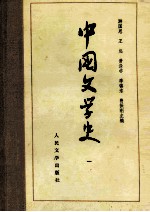 游国恩 王起 萧涤非 季镇淮 费振刚主编
中国文学史
一
人民文学出版社